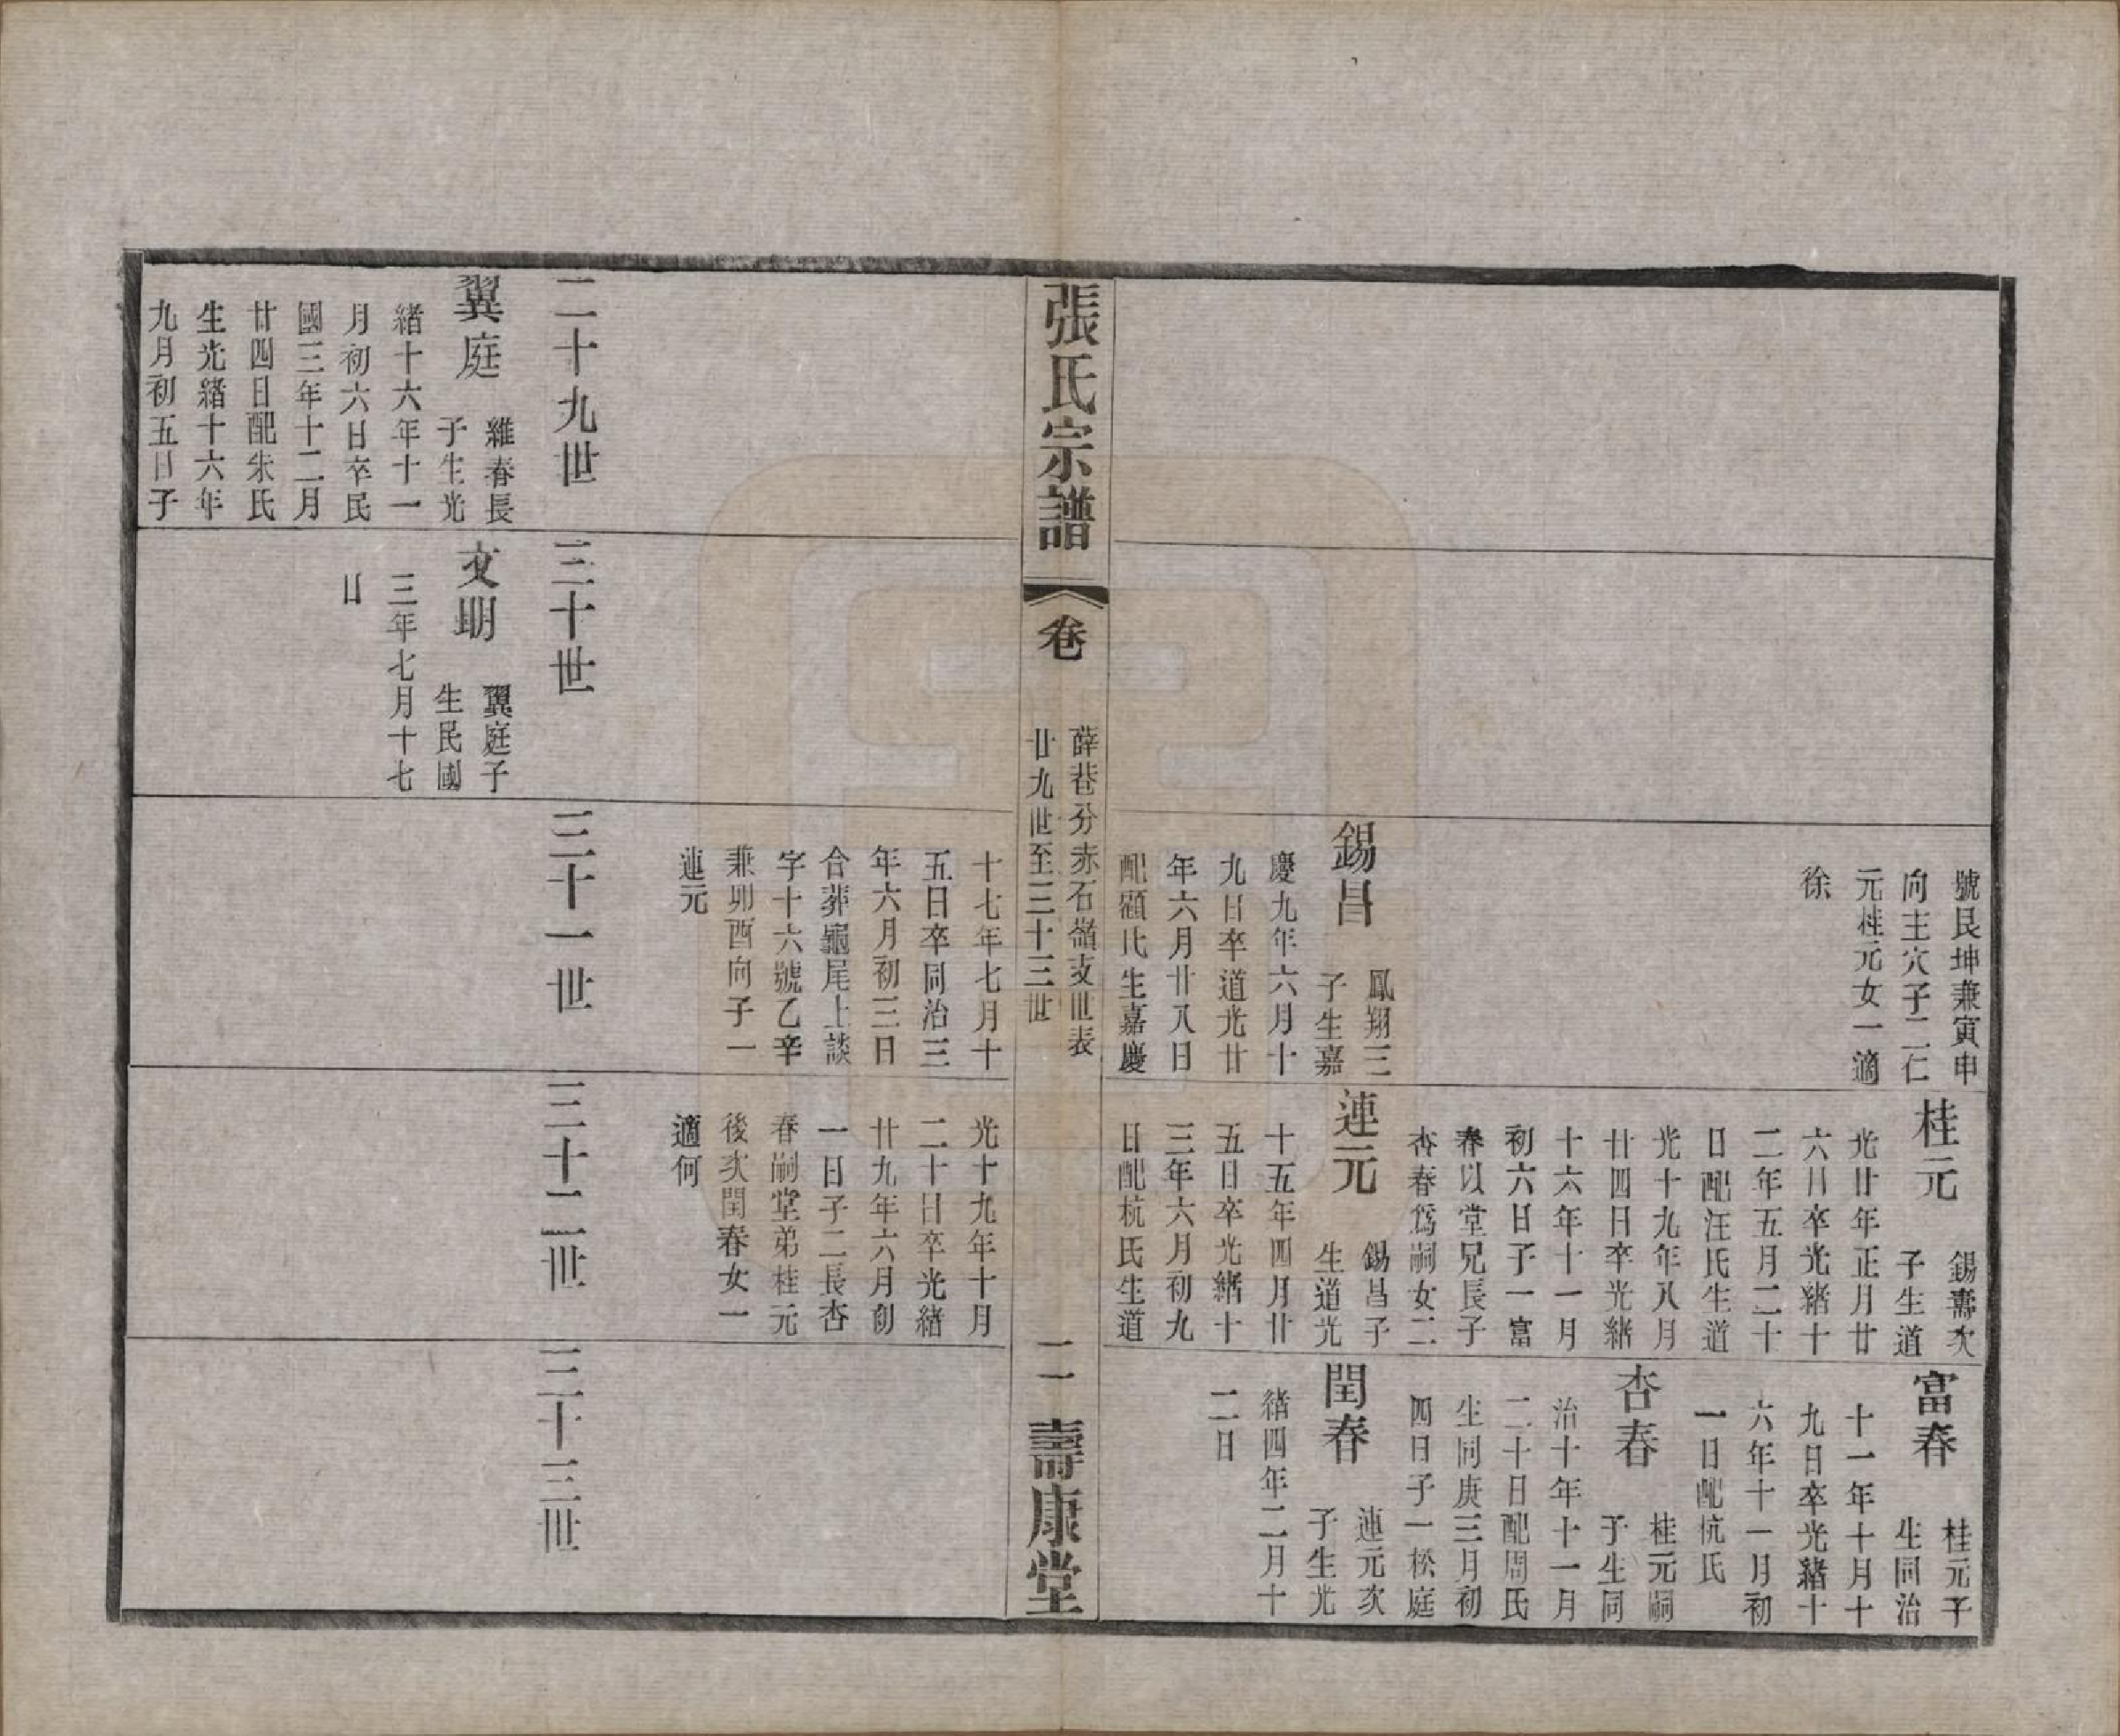 號艮坤兼寅申
向主穴子二仁
元桂元女一適
徐
錫昌
鳳翔三
子生嘉
慶九年六月十
九日卒道光廿
年六月廿八日
配顧氏生嘉慶
桂元
錫壽次
子生道
光廿年正月廿
六日卒光緒十
二年五月二十
日配汪氏生道
光十九年八月
廿四日卒光緒
十六年十一月
初六日子一富
春以堂兄長子
杏春爲嗣女二
連元
錫昌子
生道光
十五年四月廿
五日卒光緒十
三年六月初九
日配杭氏生道
富春
桂元子
生同治
十一年十月十
九日卒光緒十
六年十一月初
一日配杭氏
杏春
桂元嗣
子生同
治十年十一月
二十日配周氏
生同庚三月初
四日子一松庭
閏春
連元次
子生光
緒四年二月十
二日
張氏宗譜
卷
薛巷分赤石嶺支世表
廿九世至三十三世
二
壽康堂
十七年七月十
五日卒同治三
年六月初三日
合葬龜尾上談
字十六號乙辛
兼卯酉向子一
連元
光十九年十月
二十日卒光緒
廿九年六月初
一日子二長杏
春嗣堂弟桂元
後次閏春女一
適何
二十九世
三十世
三十一世
三十二世
三十三世
翼庭
維春長
子生光
緒十六年十一
月初六日卒民
國三年十二月
廿四日配朱氏
生光緒十六年
九月初五日子
文明
翼庭子
生民國
三年七月十七
日